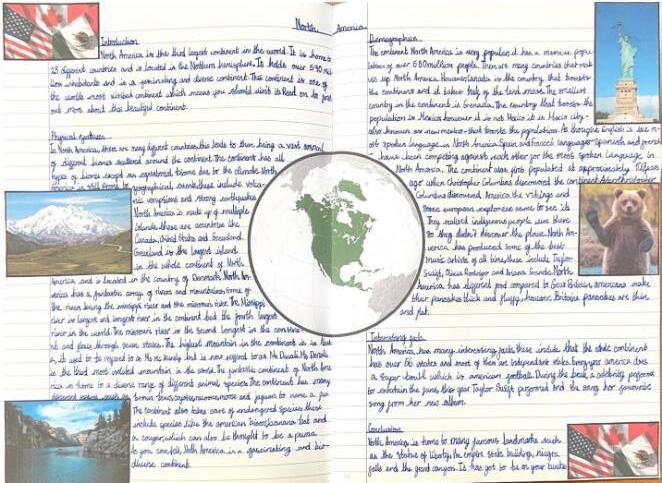 North America
Introduction
North America is the third largest continent in the world. It is home to
23 different countries and is located in the Northern hemisphere. It holds over 590 mil-
lion inhabitants and is a fascinating and diverse continent. This continent is one of
the worlds most visited continent which means you should visit it. Read on to find
out more about this beautiful continent.
Physical features
In North America, there are many different countries, this leads to there being a vast amount
of different biomes scattered around the continent. The continent has all
types of biomes except an equatorial biome due to the climate. North
America is still prone to geographical events, these include volca-
nic eruptions and strong earthquakes
North America is made up of multiple
islands, these are countries like
Canada, United States and Greenland.
Greenland is the largest island
in the whole continent of North
America and is located in the country of Denmark. North Am-
erica has a fantastic array of rivers and mountains, some of
the rivers being the mississippi river and the missouri river. The Mississippi
river is largest and longest river in the continent but the fourth largest
river in the world. The missouri river is the second longest in the contine
nt and flows through seven states. The highest mountain in the continent is in Alask
a, it used to be regared to as
but is now referred to as Mt Denali. Mt Denali
is the third most isolated mountain in the world. The fantastic continent of North Ame
rica is home to a diverse range of different animal species. The continent has many
different
such as
bears, coyotes,
and jaguars to name a few
The continent also takes care of endangered species, these
include species like the american bison,
bat and
a cougar, which can also be thought to be a puma.
As you can tell, North America is a fascinating and bio-
diverse continent.
Demographics
The continent North America is very populus, it has a massive popu-
lation of over 580 million people. There are many countries that mak
es up North America. However, Canada is the country that
the continent and it takes
of the land mass. The smallest
country in the continent is Grenada. The country that
the
population is Mexico however it is not Mexico it is Mexico city -
also known as new mexico - that boosts the population. As thought, English is the m-
ost spoken language in North America. Spain and France's languages - Spanish and french
- have been competing against each other for the most spoken language in
North America. The continent was first populated at approximately
years
ago when Christopher Columbus discovered the continent. After Christopher
Columbus discovered America the vikings and
some european explorers came to see it.
They realised indigenous people were there
so they didn't discover the place. North Am-
erica has produced some of the best
music artists of all time, these include Taylor
Swift, Olivia Rodrigo and Ariana Grande. North
America has different food compared to Great Britain, americans make
their pancakes thick and fluffy, however, Britains pancakes are thin
and flat.
Interesting facts
North America has many interesting facts, these include that the whole continent
has over 66 states and most of them are independent states. Every year america does
a super bowl which is american football. During the break, a celebrity performs
to entertain the fans, this year Taylor Swift performed and she sang her favourite
song from her new album.
Conclusion
North America is home to many famous landmarks such
as the statue of liberty, the empire state building, niagra
falls and the grand canyon. It has got to be on your bucke